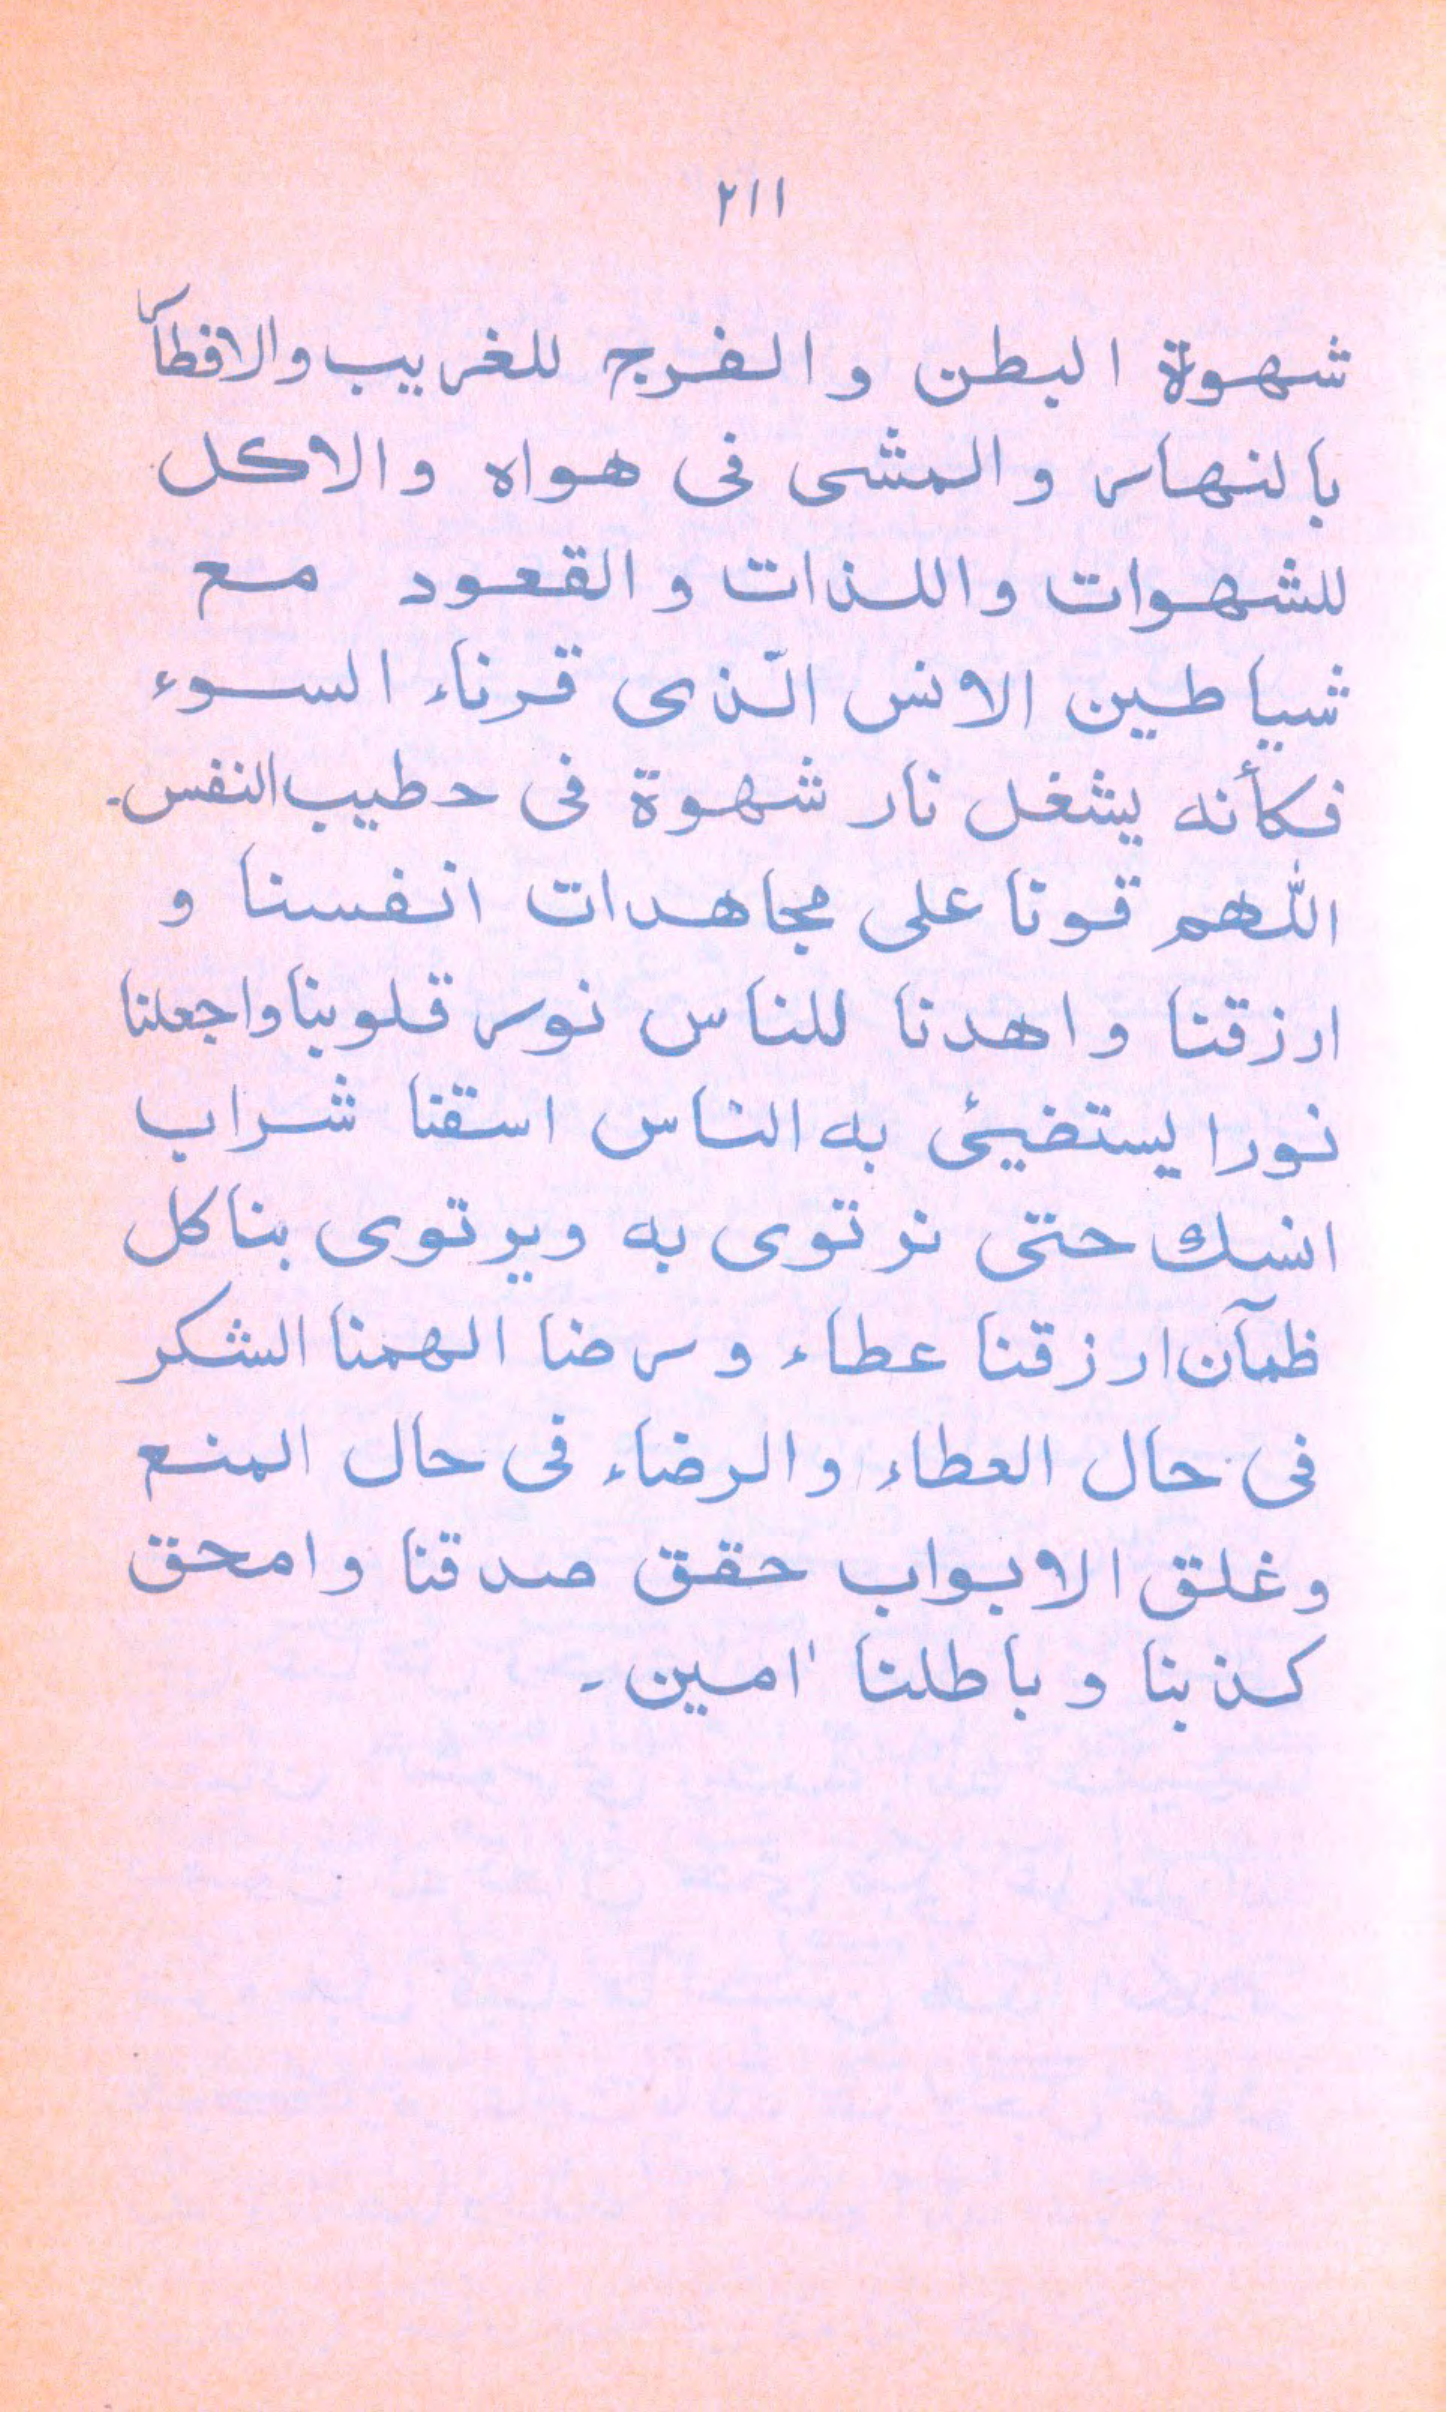 ٢١١
شهوة البطن والفرج للغريب والافطار
بالنهار والمشى فى هواه والاكل
للشهوات واللذات والقعود مع
شياطين الانس الّذى قرناء السوء
فكأنه يشغل نار شهوة فى حطيب النفس۔
اللهم قونا على مجاهدات انفسنا و
ارزقنا واهدنا للناس نور قلوبنا واجعلنا
نورا يستضيئ به الناس اسقنا شراب
انسك حتى نرتوى به ويرتوى بنا كل
ظمآن ارزقنا عطاء ورضا الهمنا الشكر
فى حال العطاء والرضاء فى حال المنع
وغلق الابواب حقق صدقنا وامحق
كذبنا وباطلنا امين۔